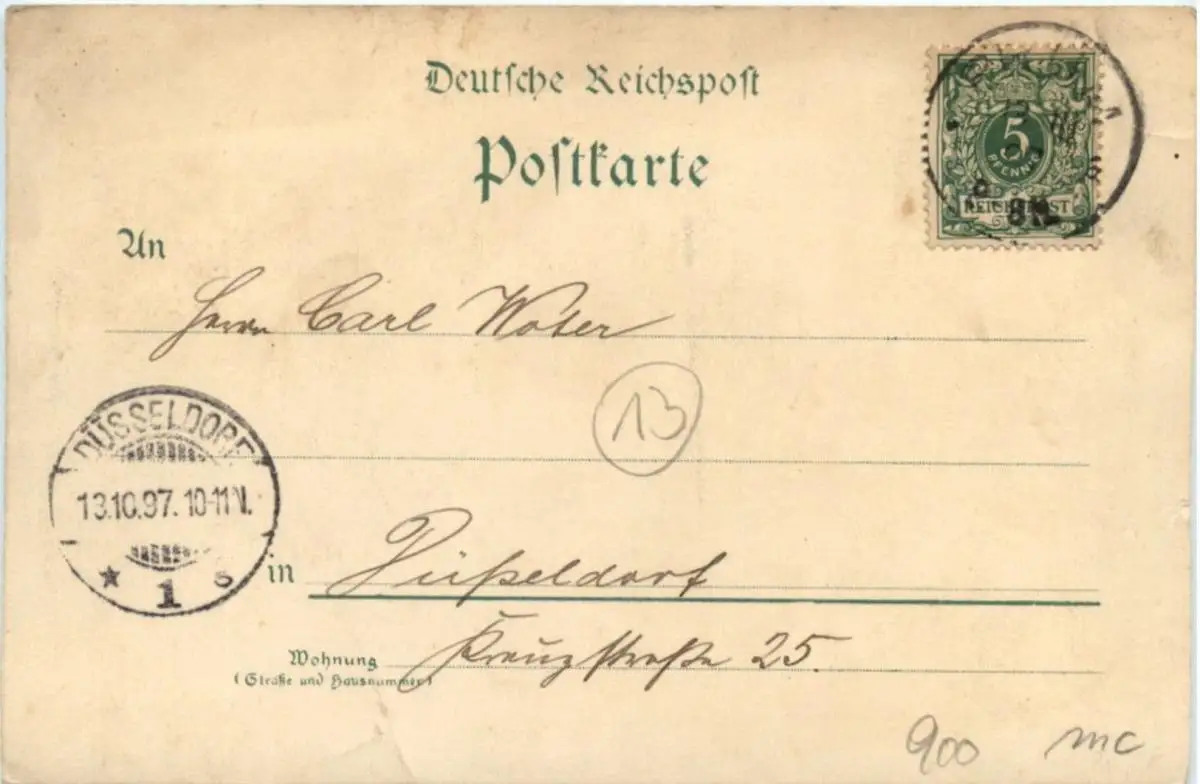 Deutsche Reichspost
Postkarte
5
PFENNIG
REICHSPOST
8N.
An
Herrn Carl Woter
13
DÜSSELDORF
13.10.97. 10-11 V.
★ 1 s
in Düßeldorf
Wohnung Kreuzstraße 25.
(Straße und Hausnummer)
900 mc